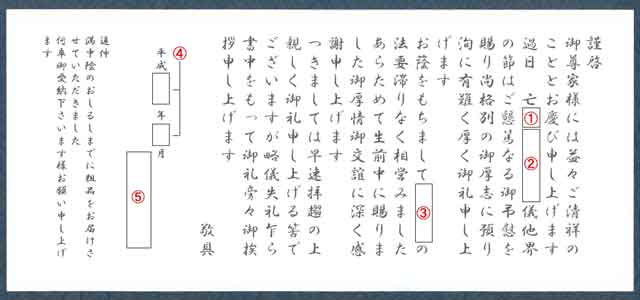 謹啓
御尊家様には益々ご清祥の
こととお慶び申し上げます
過日 亡 ① ② 儀他界
の節はご懇篤なる御弔慰を
賜り尚格別の御厚志に預り
洵に有難く厚く御礼申し上
げます
お蔭をもちまして ③ の
法要滞りなく相営みました
あらためて生前中に賜りま
した御厚情御交誼に深く感
謝申し上げます
つきましては早速拝趨の上
親しく御礼申し上げる筈で
ございますが略儀失礼乍ら
書中をもって御礼旁々御挨
拶申し上げます
敬具
④
平成 年 月
⑤
追伸
満中陰のおしるしまでに粗品をお届けさ
せていただきました
何卒御受納下さいます様お願い申し上げ
ます